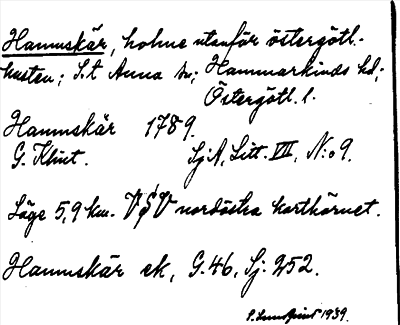 Hamnskär, holme utanför östergötl.-
kusten; S:t Anna sn; Hammarkinds hd;
Östergötl. l.
Hamnskär 1789.
G. Klint. SjA, Litt. VII, N:o 9.
Läge 5,9 km. VSV nordöstra karthörnet.
Hamnskär ek, G. 46, Sj. 252.
1939.